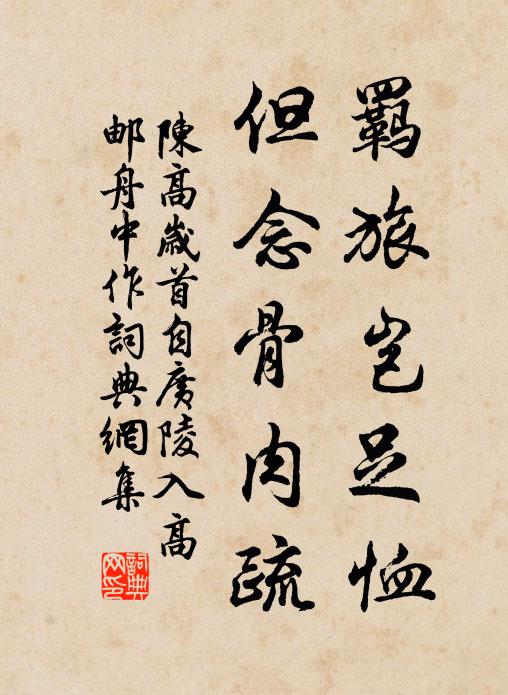 羈旅豈足恤
但念骨肉疏
陳高歲首自廣陵入高
邮舟中作詞典網集
詞典网印